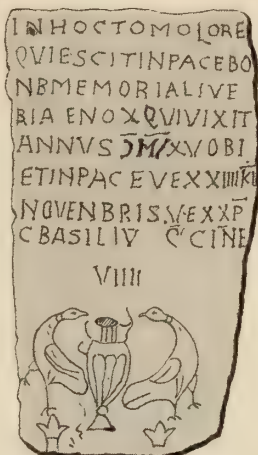 INHOCTOMOLORE
QVIESCITINPACEBO
NBMEMORIALIVE
RIA ENOXQVIVIXIT
ANNVS XVOBI
ETINPACEVEXXIIII
NOVENBRIS.VEXXP̅
CBASILIV C̅CINE
VIIII